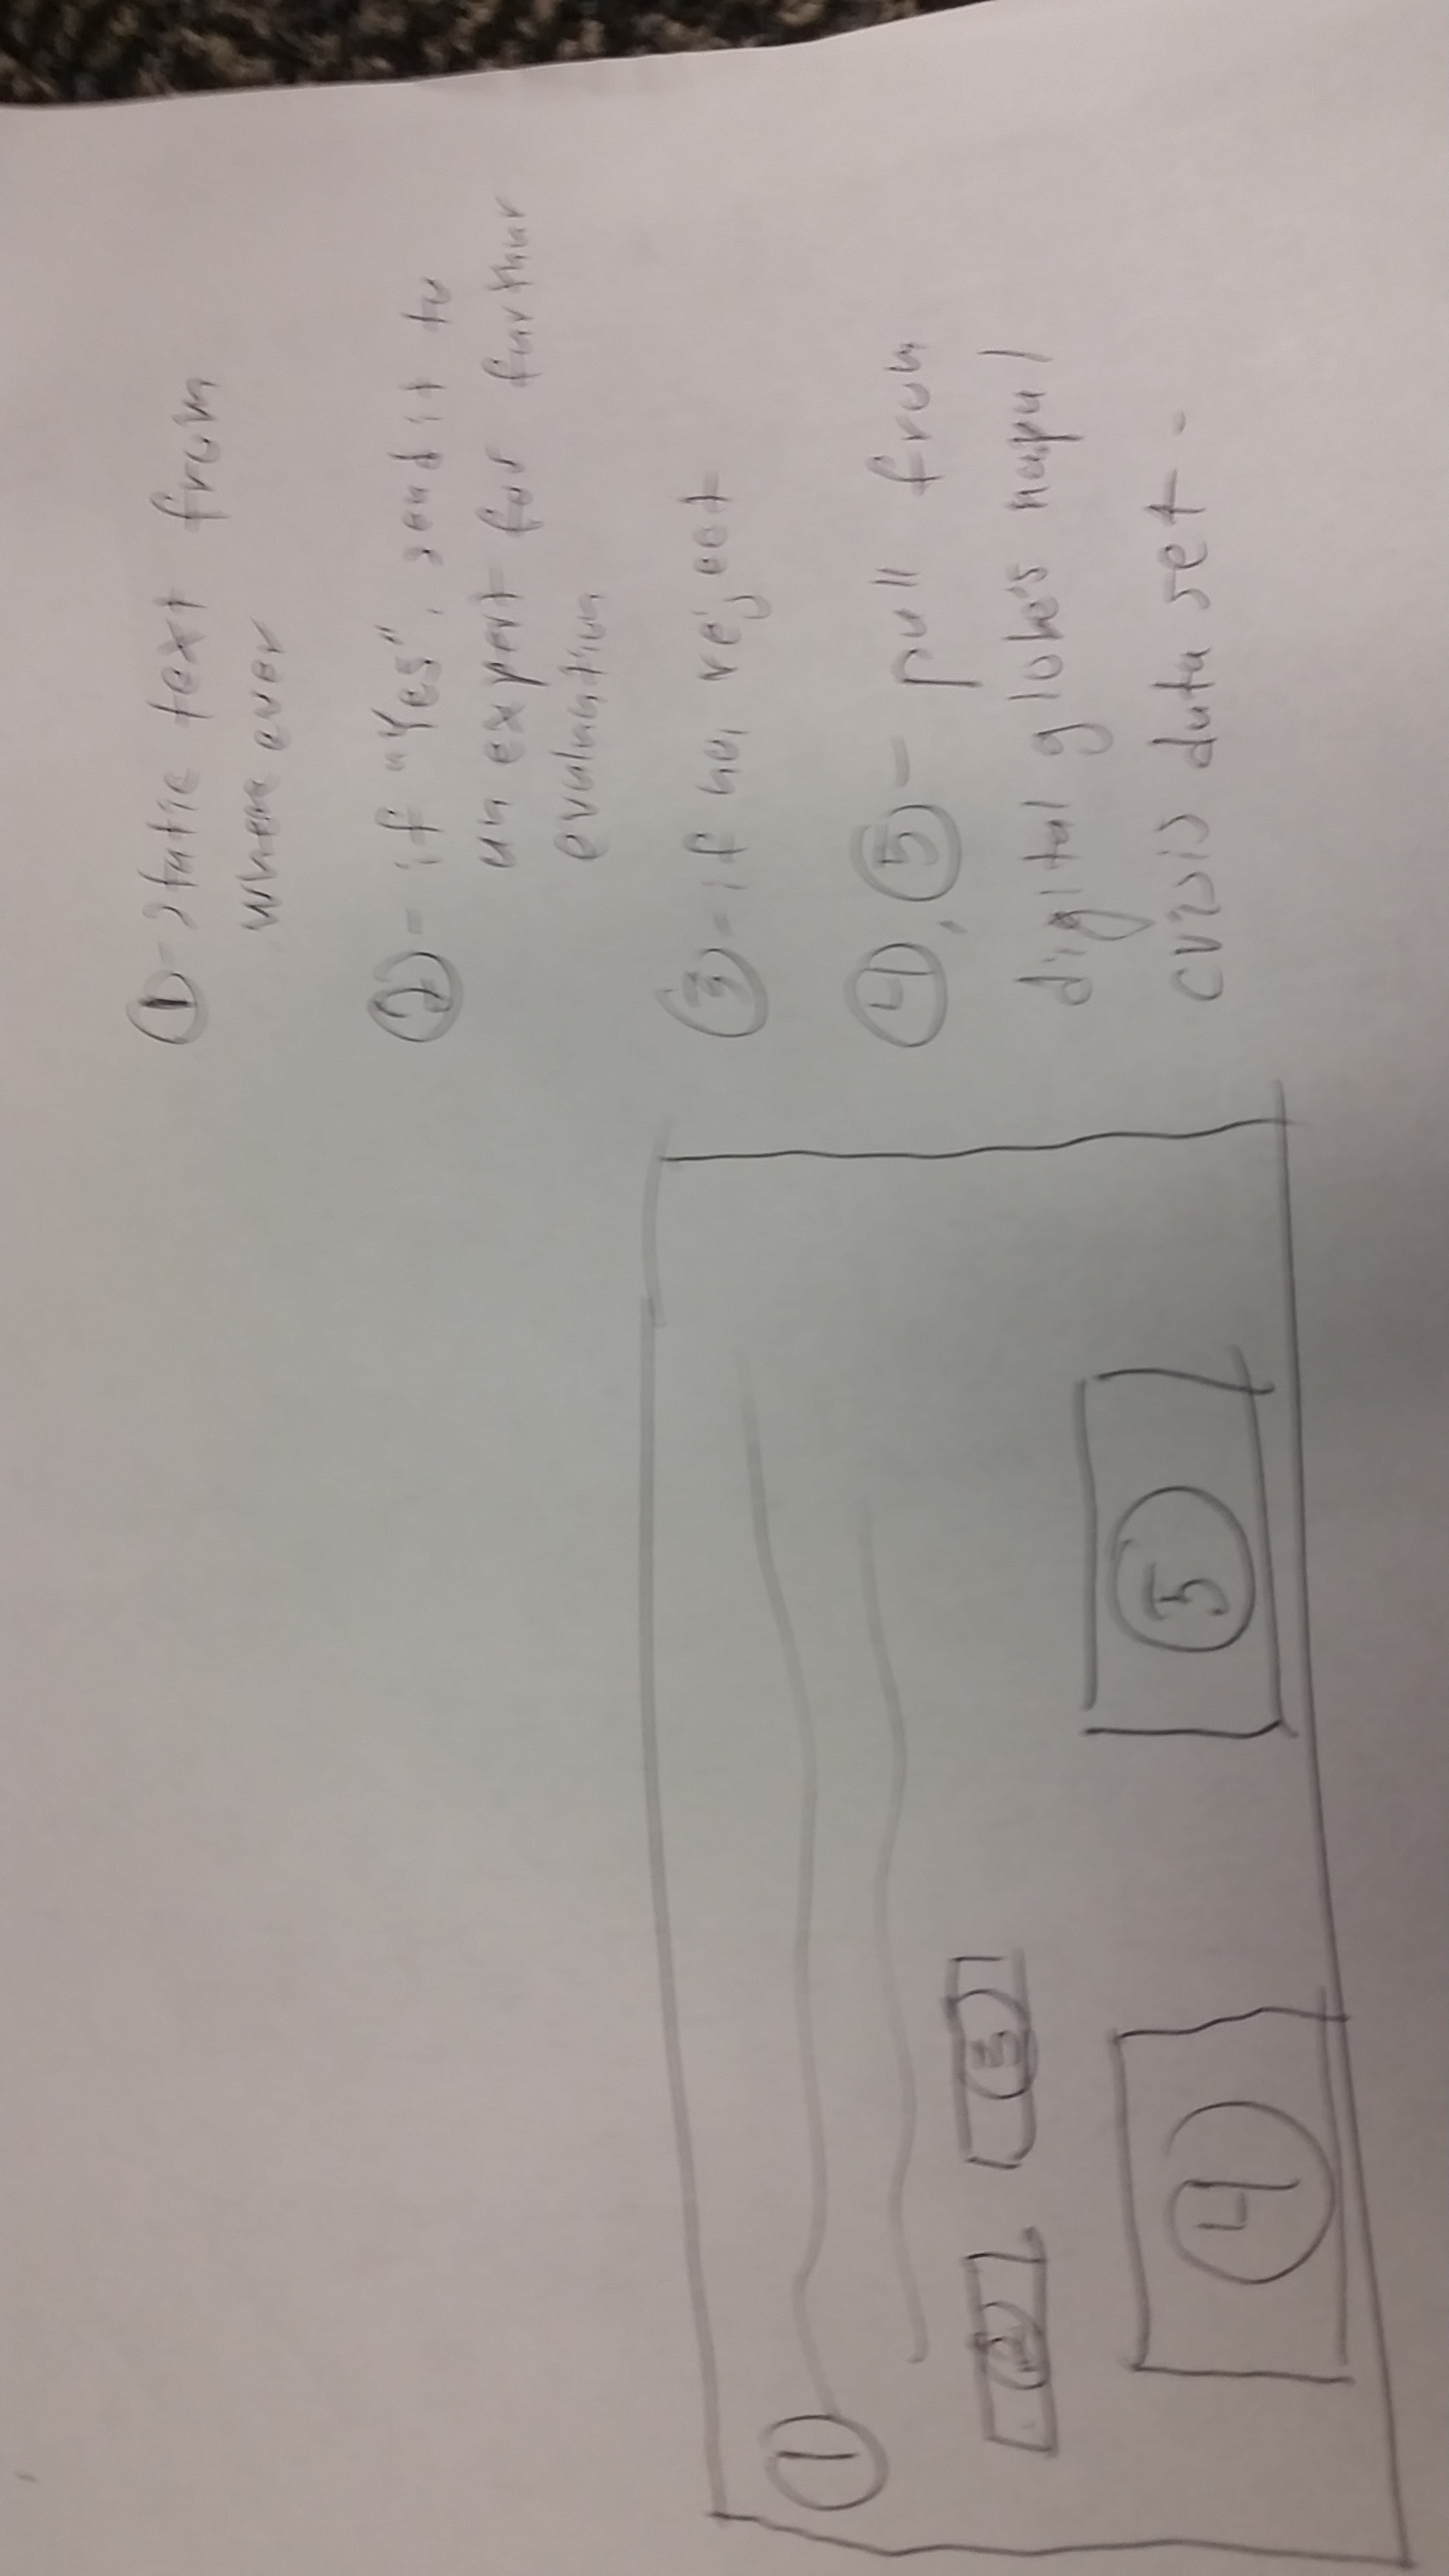 ① - static text from
where ever
② - if "Yes", send it to
an expert for further
evaluation
③ - if no, reject
④, ⑤ - pull from
digital globe's nepal
crisis data set -
①
② ③
④ ⑤